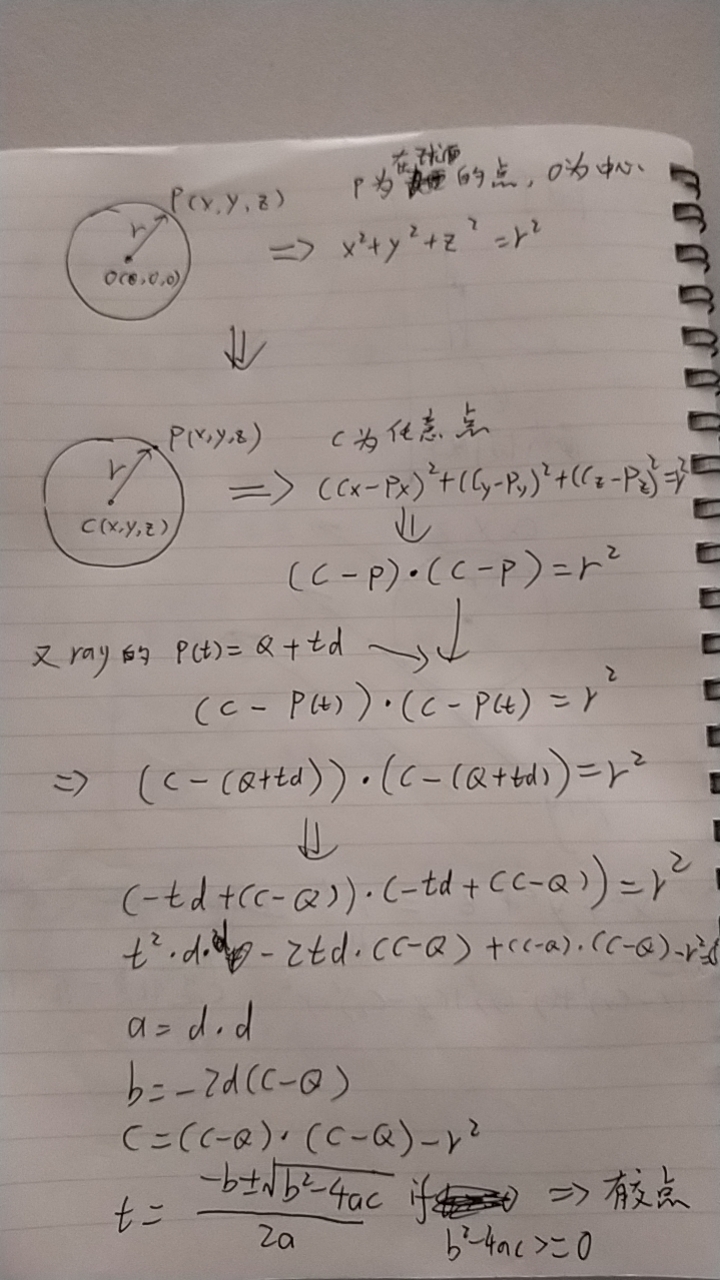 P为在球面的点，O为中心
P(x,y,z)
r
O(0,0,0)
=> x²+y²+z²=r²
⇓
P(x,y,z)
C为任意点
r
C(x,y,z)
=> (Cx-Px)²+(Cy-Py)²+(Cz-Pz)²=r²
⇓
(C-P)·(C-P)=r²
又ray的 P(t)=Q+td → ↓
(C-P(t))·(C-P(t)=r²
=> (C-(Q+td))·(C-(Q+td))=r²
⇓
(-td+(C-Q))·(-td+(C-Q))=r²
t²·d·d-2td·(C-Q)+(C-Q)·(C-Q)-r²=0
a=d·d
b=-2d(C-Q)
C=(C-Q)·(C-Q)-r²
t=(-b±√(b²-4ac))/2a if b²-4ac>=0 => 有交点